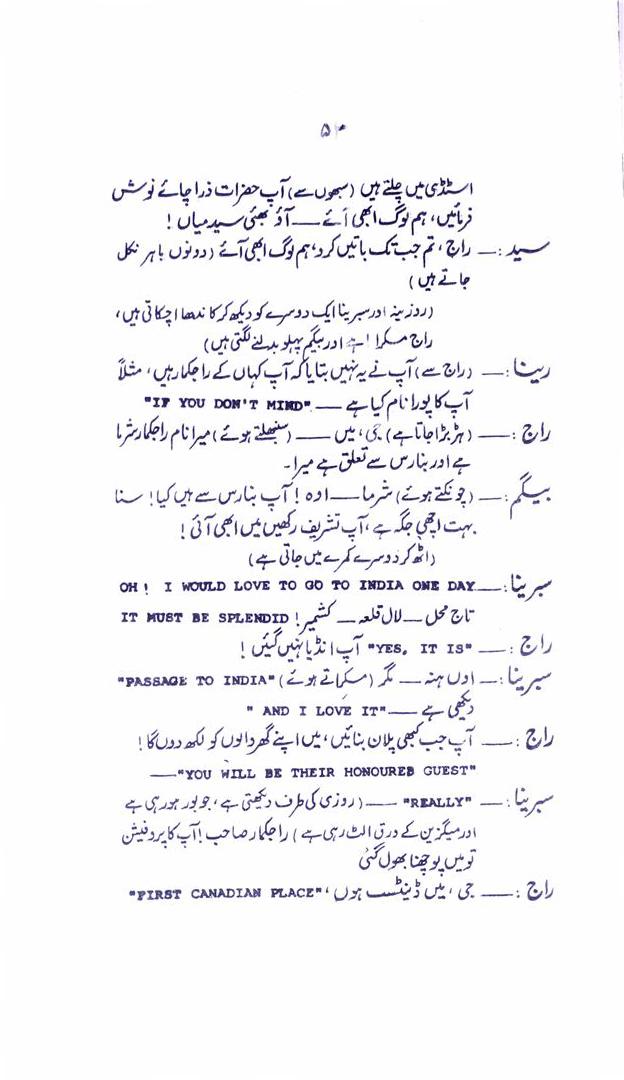 ۵۲
اسٹڈی میں چلتے ہیں (سبھوں سے) آپ حضرات ذرا چائے نوش
فرمائیں، ہم لوگ ابھی آئے — آؤ بھئی سید میاں !
سید :— راج ، تم جب تک باتیں کرو، ہم لوگ ابھی آئے (دونوں باہر نکل
جاتے ہیں)
(روزینہ اور سبرینا ایک دوسرے کو دیکھ کر کاندھا اچکاتی ہیں،
راج مسکرا رہا ہے اور بیگم پہلو بدلنے لگتی ہیں)
رینا :— (راج سے) آپ نے یہ نہیں بتایا کہ آپ کہاں کے راجکمار ہیں، مثلاً
آپ کا پورا نام کیا ہے — "IF YOU DON'T MIND"
راج :— (ہڑبڑا جاتا ہے) جی، میں — (سنبھلتے ہوئے) میرا نام راجکمار شرما
ہے اور بنارس سے تعلق ہے میرا۔
بیگم :— (چونکتے ہوئے) شرما — اوہ ! آپ بنارس سے ہیں کیا ! سنا
بہت اچھی جگہ ہے، آپ تشریف رکھیں میں ابھی آئی !
(اٹھ کر دوسرے کمرے میں جاتی ہے)
سبرینا :— OH! I WOULD LOVE TO GO TO INDIA ONE DAY
تاج محل — لال قلعہ — کشمیر ! IT MUST BE SPLENDID
راج :— "YES, IT IS" آپ انڈیا نہیں گئیں !
سبرینا :— اوں ہنہ — مگر (مسکراتے ہوئے) "PASSAGE TO INDIA"
دیکھی ہے — "AND I LOVE IT"
راج :— آپ جب کبھی پلان بنائیں، میں اپنے گھر والوں کو لکھ دوں گا !
— "YOU WILL BE THEIR HONOURED GUEST"
سبرینا :— "REALLY" — (روزی کی طرف دیکھتی ہے، جو بور ہو رہی ہے
اور میگزین کے ورق الٹ رہی ہے) راجکمار صاحب ! آپ کا پروفیشن
تو میں پوچھنا بھول گئی
راج :— جی، میں ڈینٹسٹ ہوں، "FIRST CANADIAN PLACE"